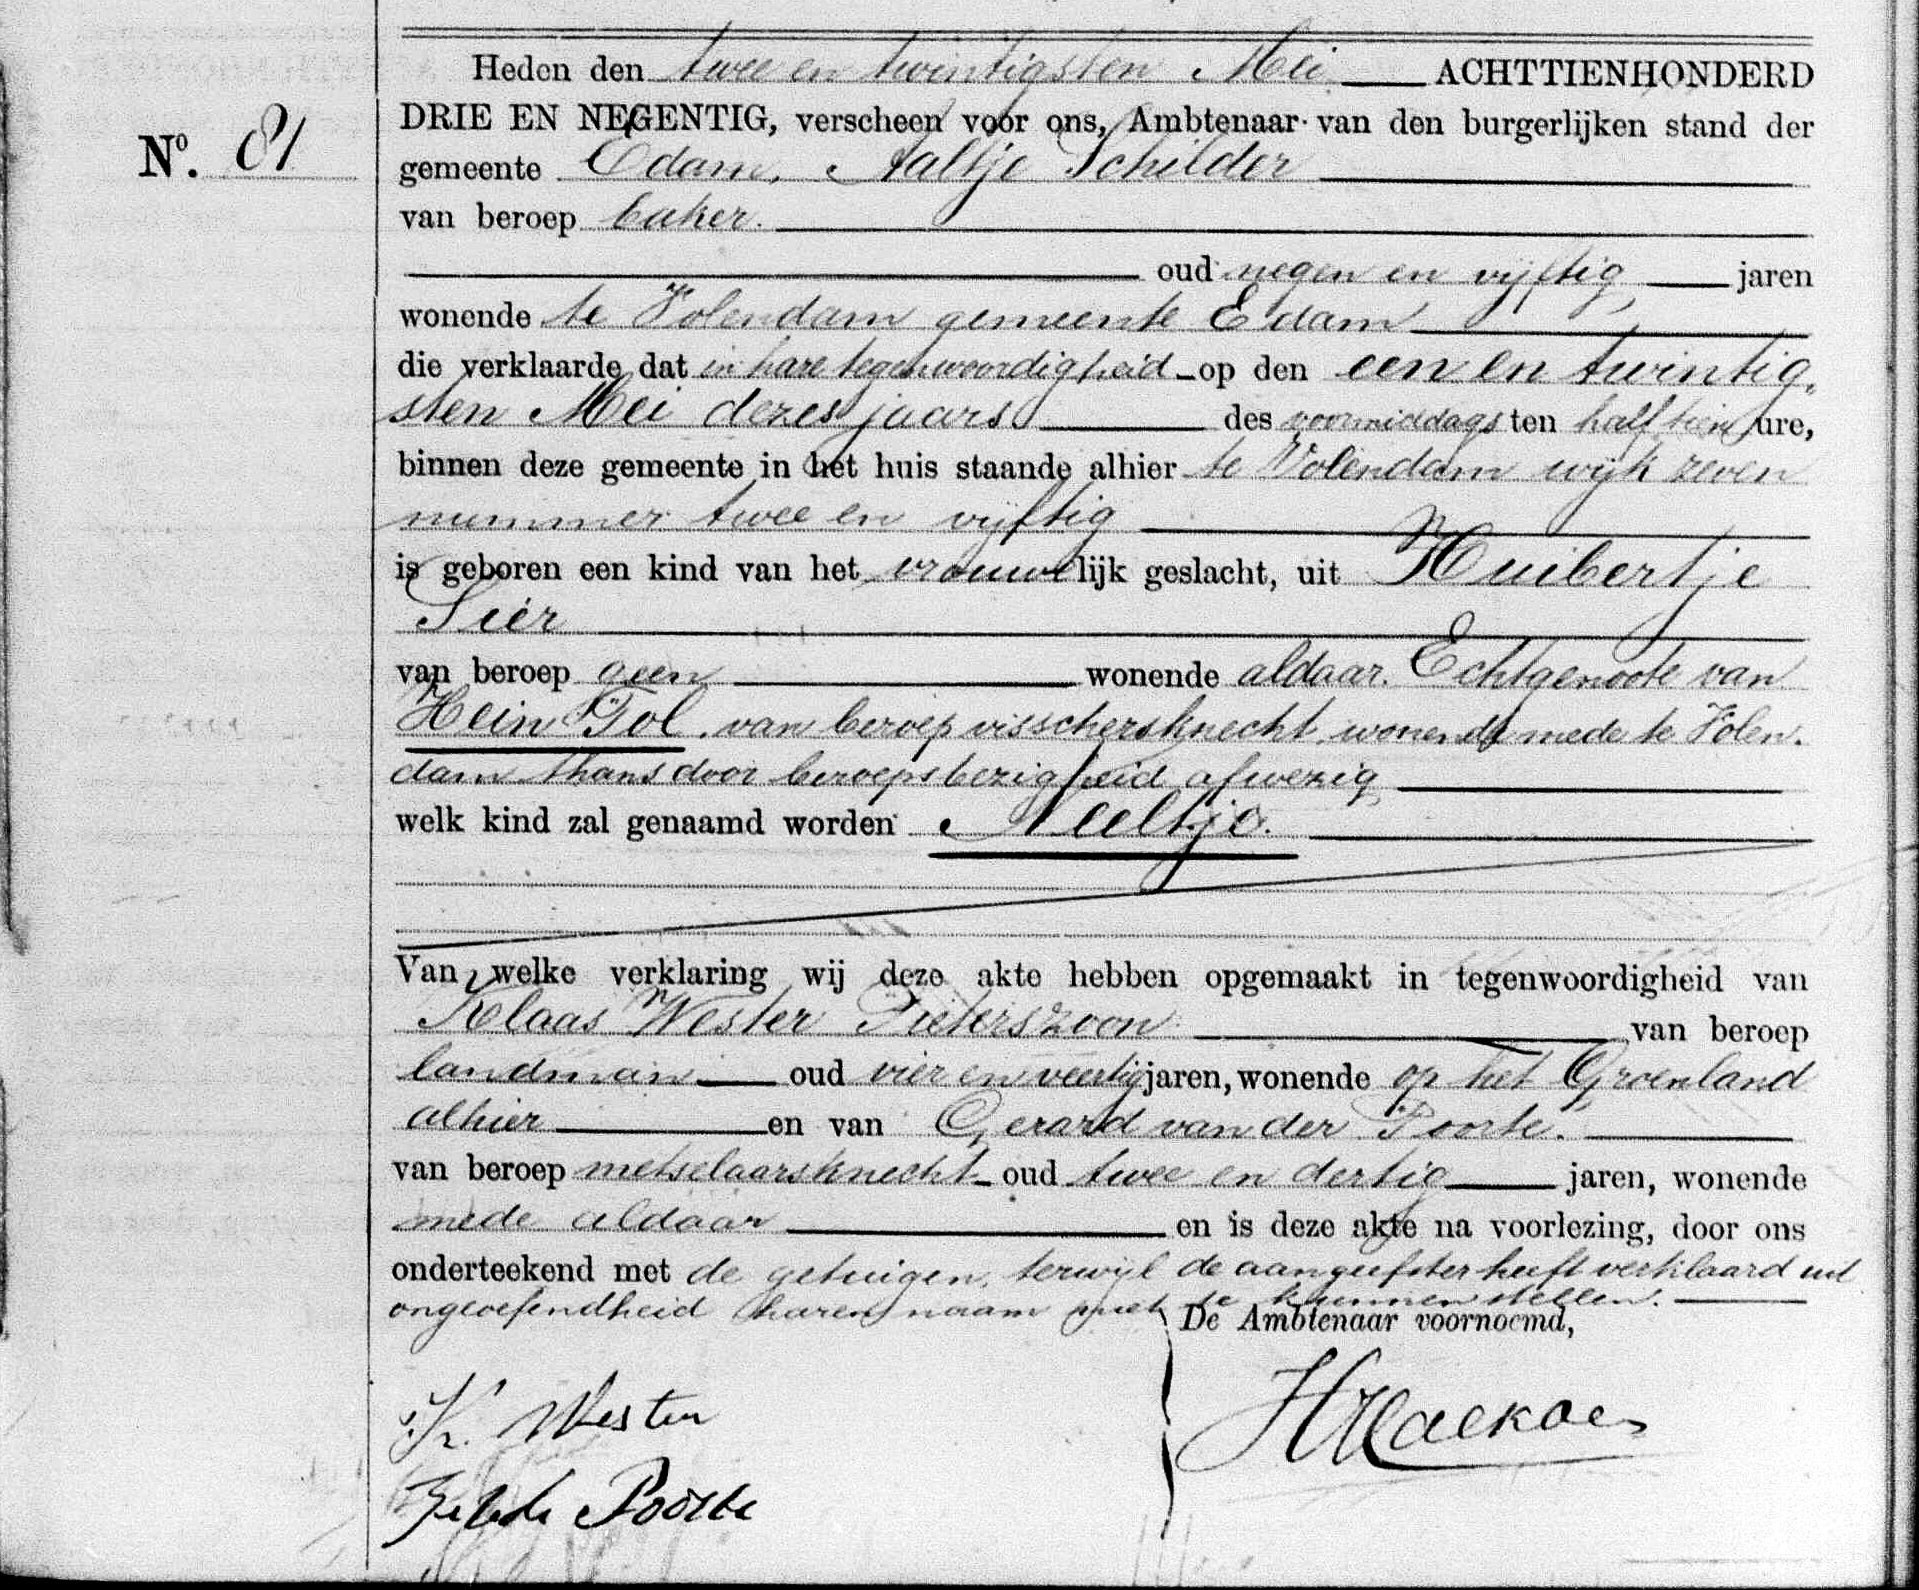 Heden den twee en twintigsten Mei ACHTTIENHONDERD
DRIE EN NEGENTIG, verscheen voor ons, Ambtenaar van den burgerlijken stand der
No. 81
gemeente Edam, Aaltje Schilder
van beroep baker.
oud negen en vijftig jaren
wonende te Volendam gemeente Edam
die verklaarde dat in hare tegenwoordigheid op den een en twintig-
sten Mei dezes jaars des voormiddags ten half tien ure,
binnen deze gemeente in het huis staande alhier te Volendam wijk zeven
nummer twee en vijftig
is geboren een kind van het vrouwelijk geslacht, uit Huibertje
Sier
van beroep geen wonende aldaar. Echtgenoote van
Hein Tol, van beroep visschersknecht wonende mede te Volen-
dam thans door beroepsbezigheid afwezig
welk kind zal genaamd worden Neeltje.
Van welke verklaring wij deze akte hebben opgemaakt in tegenwoordigheid van
Klaas Wester Pieterszoon van beroep
landman oud vier en veertig jaren, wonende op het Groenland
alhier en van Gerard van der Poorte.
van beroep metselaarsknecht oud twee en dertig jaren, wonende
mede aldaar en is deze akte na voorlezing, door ons
onderteekend met de getuigen, terwijl de aangeefster heeft verklaard uit
ongeoefendheid haren naam niet te kunnen stellen.
De Ambtenaar voornoemd,
K. Wester
Poorte